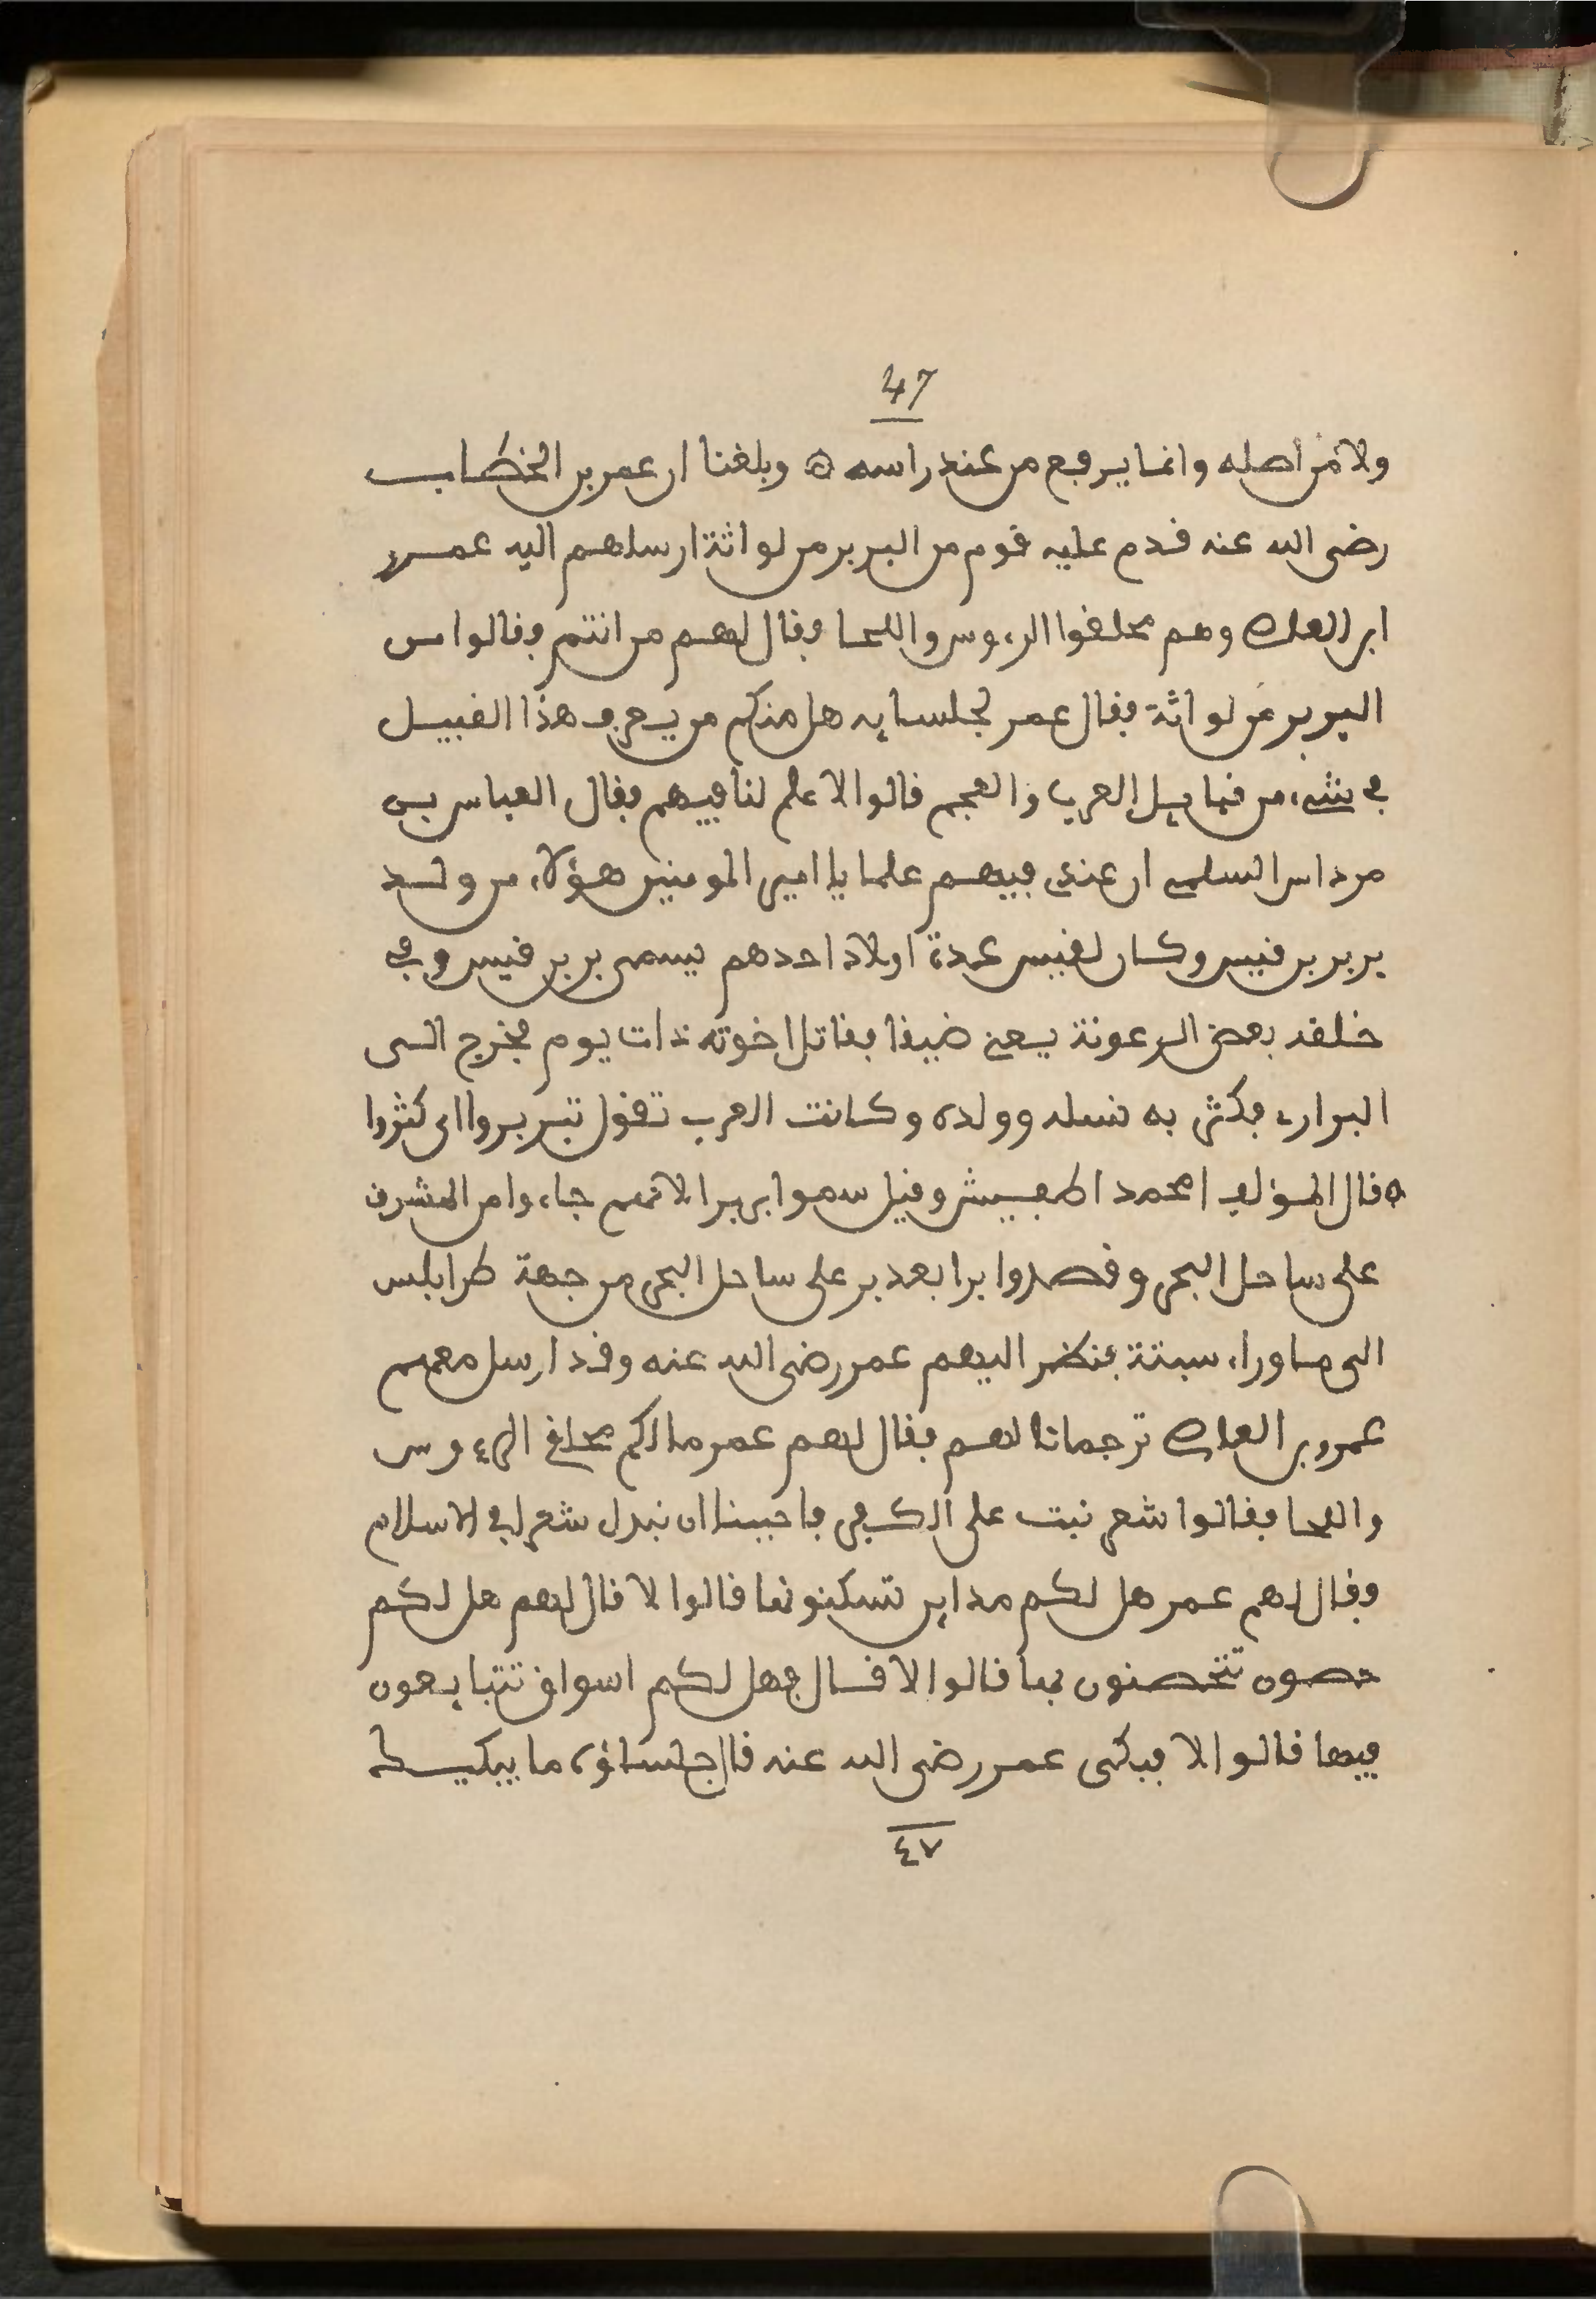 47
ولا من اصله وانما يرفع من عند راسه ۞ وبلغنا ان عمر بن الخطاب
رضى الله عنه قدم عليه قوم من البربر من لواثة ارسلهم اليه عمرو
ابن العاص وهم محلقوا الرءوس واللحا وقال لهم من انتم وقالوا من
البربر من لواثة فقال عمر لجلسايه هل منكم من يعرف هذا القبيل
في شىء من قبايل العرب والعجم قالوا لا علم لنا فيهم فقال العباس بن
مرداس السلمى ان عندى فيهم علما يا امير المومنين هؤلاء من ولد
بربر بن قيس وكان لقيس عدة اولاد احدهم يسمى بربر بن قيس وفي
خلقه بعض الرعونة يعنى ضيقا فقاتل اخوته ذات يوم فخرج الى
البرارى فكثر به نسله وولده وكانت العرب تقول تبربروا اى كثروا
۞ قال المؤلف امحمد اطفيش وقيل سموا بربرا لانهم جاءوا من المشرق
على ساحل البحر وقصدوا برا بعد بر على ساحل البحر من جهة طرابلس
الى ما وراء سبتة فنظر اليهم عمر رضى الله عنه وقد ارسل معهم
عمرو بن العاص ترجمانا لهم فقال لهم عمر ما لكم محلقى الرءوس
واللحا فقالوا شعر نبت على الكفر فاحببنا ان نبدل شعرا في الاسلام
وقال لهم عمر هل لكم مداين تسكنونها قالوا لا قال لهم هل لكم
حصون تتحصنون بها قالوا لا قال فهل لكم اسواق تتبايعون
فيها قالوا لا فبكى عمر رضى الله عنه قال جلساؤه ما يبكيك
٤٧